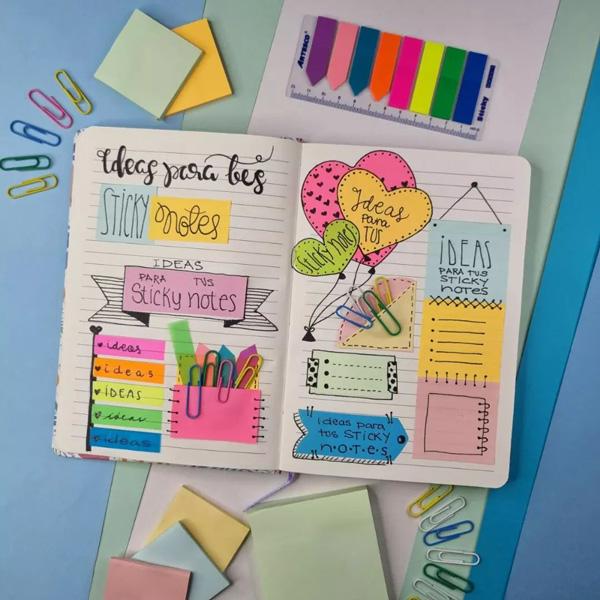 Ideas para tus
STICKY notes
IDEAS
PARA TUS
Sticky notes
ideas
ideas
IDEAS
ideas
ideas
Ideas
para
TUS
Sticky notes
IDEAS
PARA TUS
STICKY
notes
Ideas para
tus STICKY
N·O·T·E·S
ARTESCO
Sticky